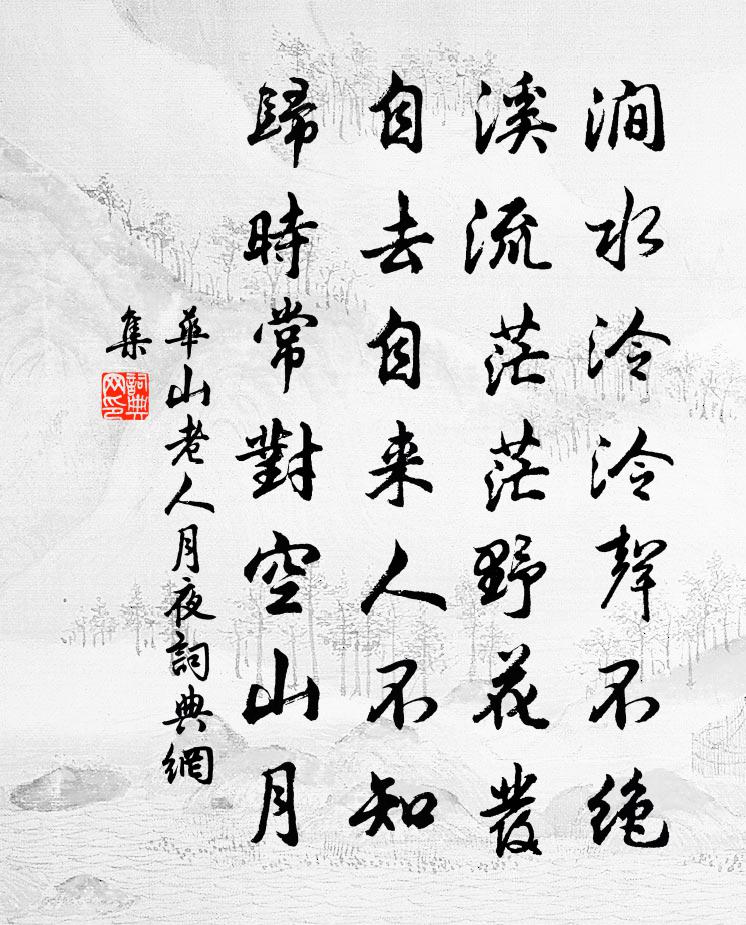 澗水泠泠聲不絶
溪流茫茫野花發
自去自来人不知
歸時常對空山月
華山老人月夜詞典網
集
詞典
网印